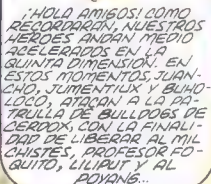 ¡HOLA AMIGOS! COMO
RECORDARÁN, NUESTROS
HÉROES ANDAN MEDIO
ACELERADOS EN LA
QUINTA DIMENSIÓN. EN
ESTOS MOMENTOS, JUAN-
CHO, JUMENTIUX Y BUHO-
LOCO, ATACAN A LA PA-
TRULLA DE BULLDOGS DE
CERDOX, CON LA FINALI-
DAD DE LIBERAR AL MIL
CHISTES, PROFESOR FO-
QUITO, LILIPUT Y AL
POYANG...